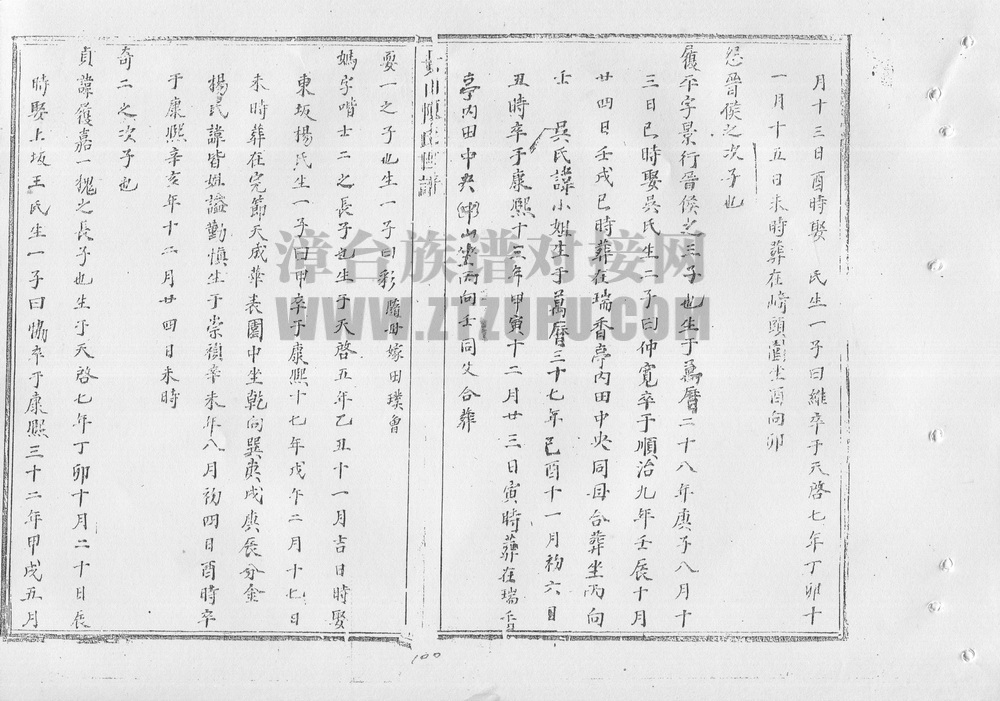 月十三日酉時娶 氏生一子曰維卒于天啓七年丁卯十
一月十五日未時葬在崎頭園坐酉向卯
晉侯之次子也
履平字景行晉侯之三子也生于萬曆二十八年庚子八月十
三日巳時娶吳氏生二子曰仲寬卒于順治九年壬辰十月
廿四日壬戌巳時葬在瑞香亭内田中央同母合葬坐丙向
壬 吳氏諱小姐生于萬曆三十七年己酉十一月初六日
丑時卒于康熙十三年甲寅十二月廿三日寅時葬在瑞香
亭内田中央 山坐丙向壬同父合葬
耍一之子也生一子曰彩隨母嫁田墣會
媽字喈士二之長子也生于天啓五年乙丑十一月吉日時娶
東坂楊氏生一子曰甲卒于康熙十七年戊午二月十七日
未時葬在完節天成葬表園中坐乾向巽庚戌庚辰分金
楊氏諱皆姐謚勤慎生于崇禎辛未年八月初四日酉時卒
于康熙辛亥年十二月廿四日未時
奇二之次子也
貞諱復嘉一槐之長子也生于天啓七年丁卯十月二十日辰
時娶上坂王氏生一子曰 卒于康熙三十二年甲戌五月
100
漳台族谱对接网
WWW.ZTZUPU.COM